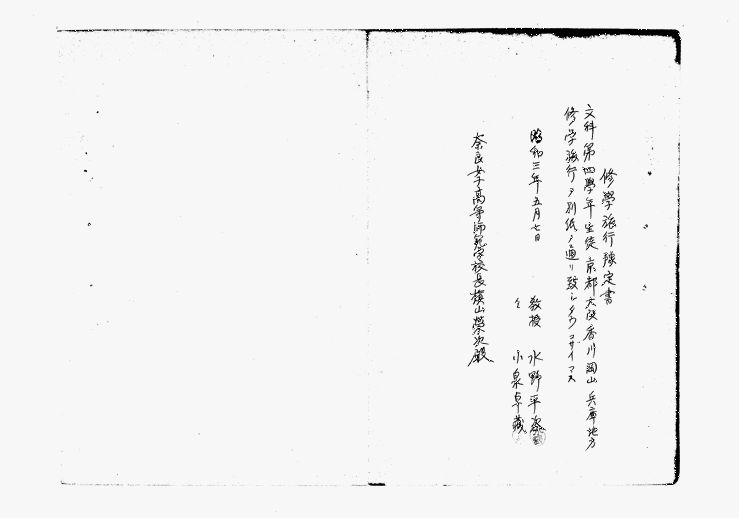 修學旅行豫定書
文科第四學年生徒京都大阪香川岡山兵庫地方
修学旅行ヲ別紙ノ通リ致シタウゴザイマス
昭和三年五月七日
教授 水野平次
〻 小泉卓蔵
奈良女子高等師範学校長槇山榮次殿